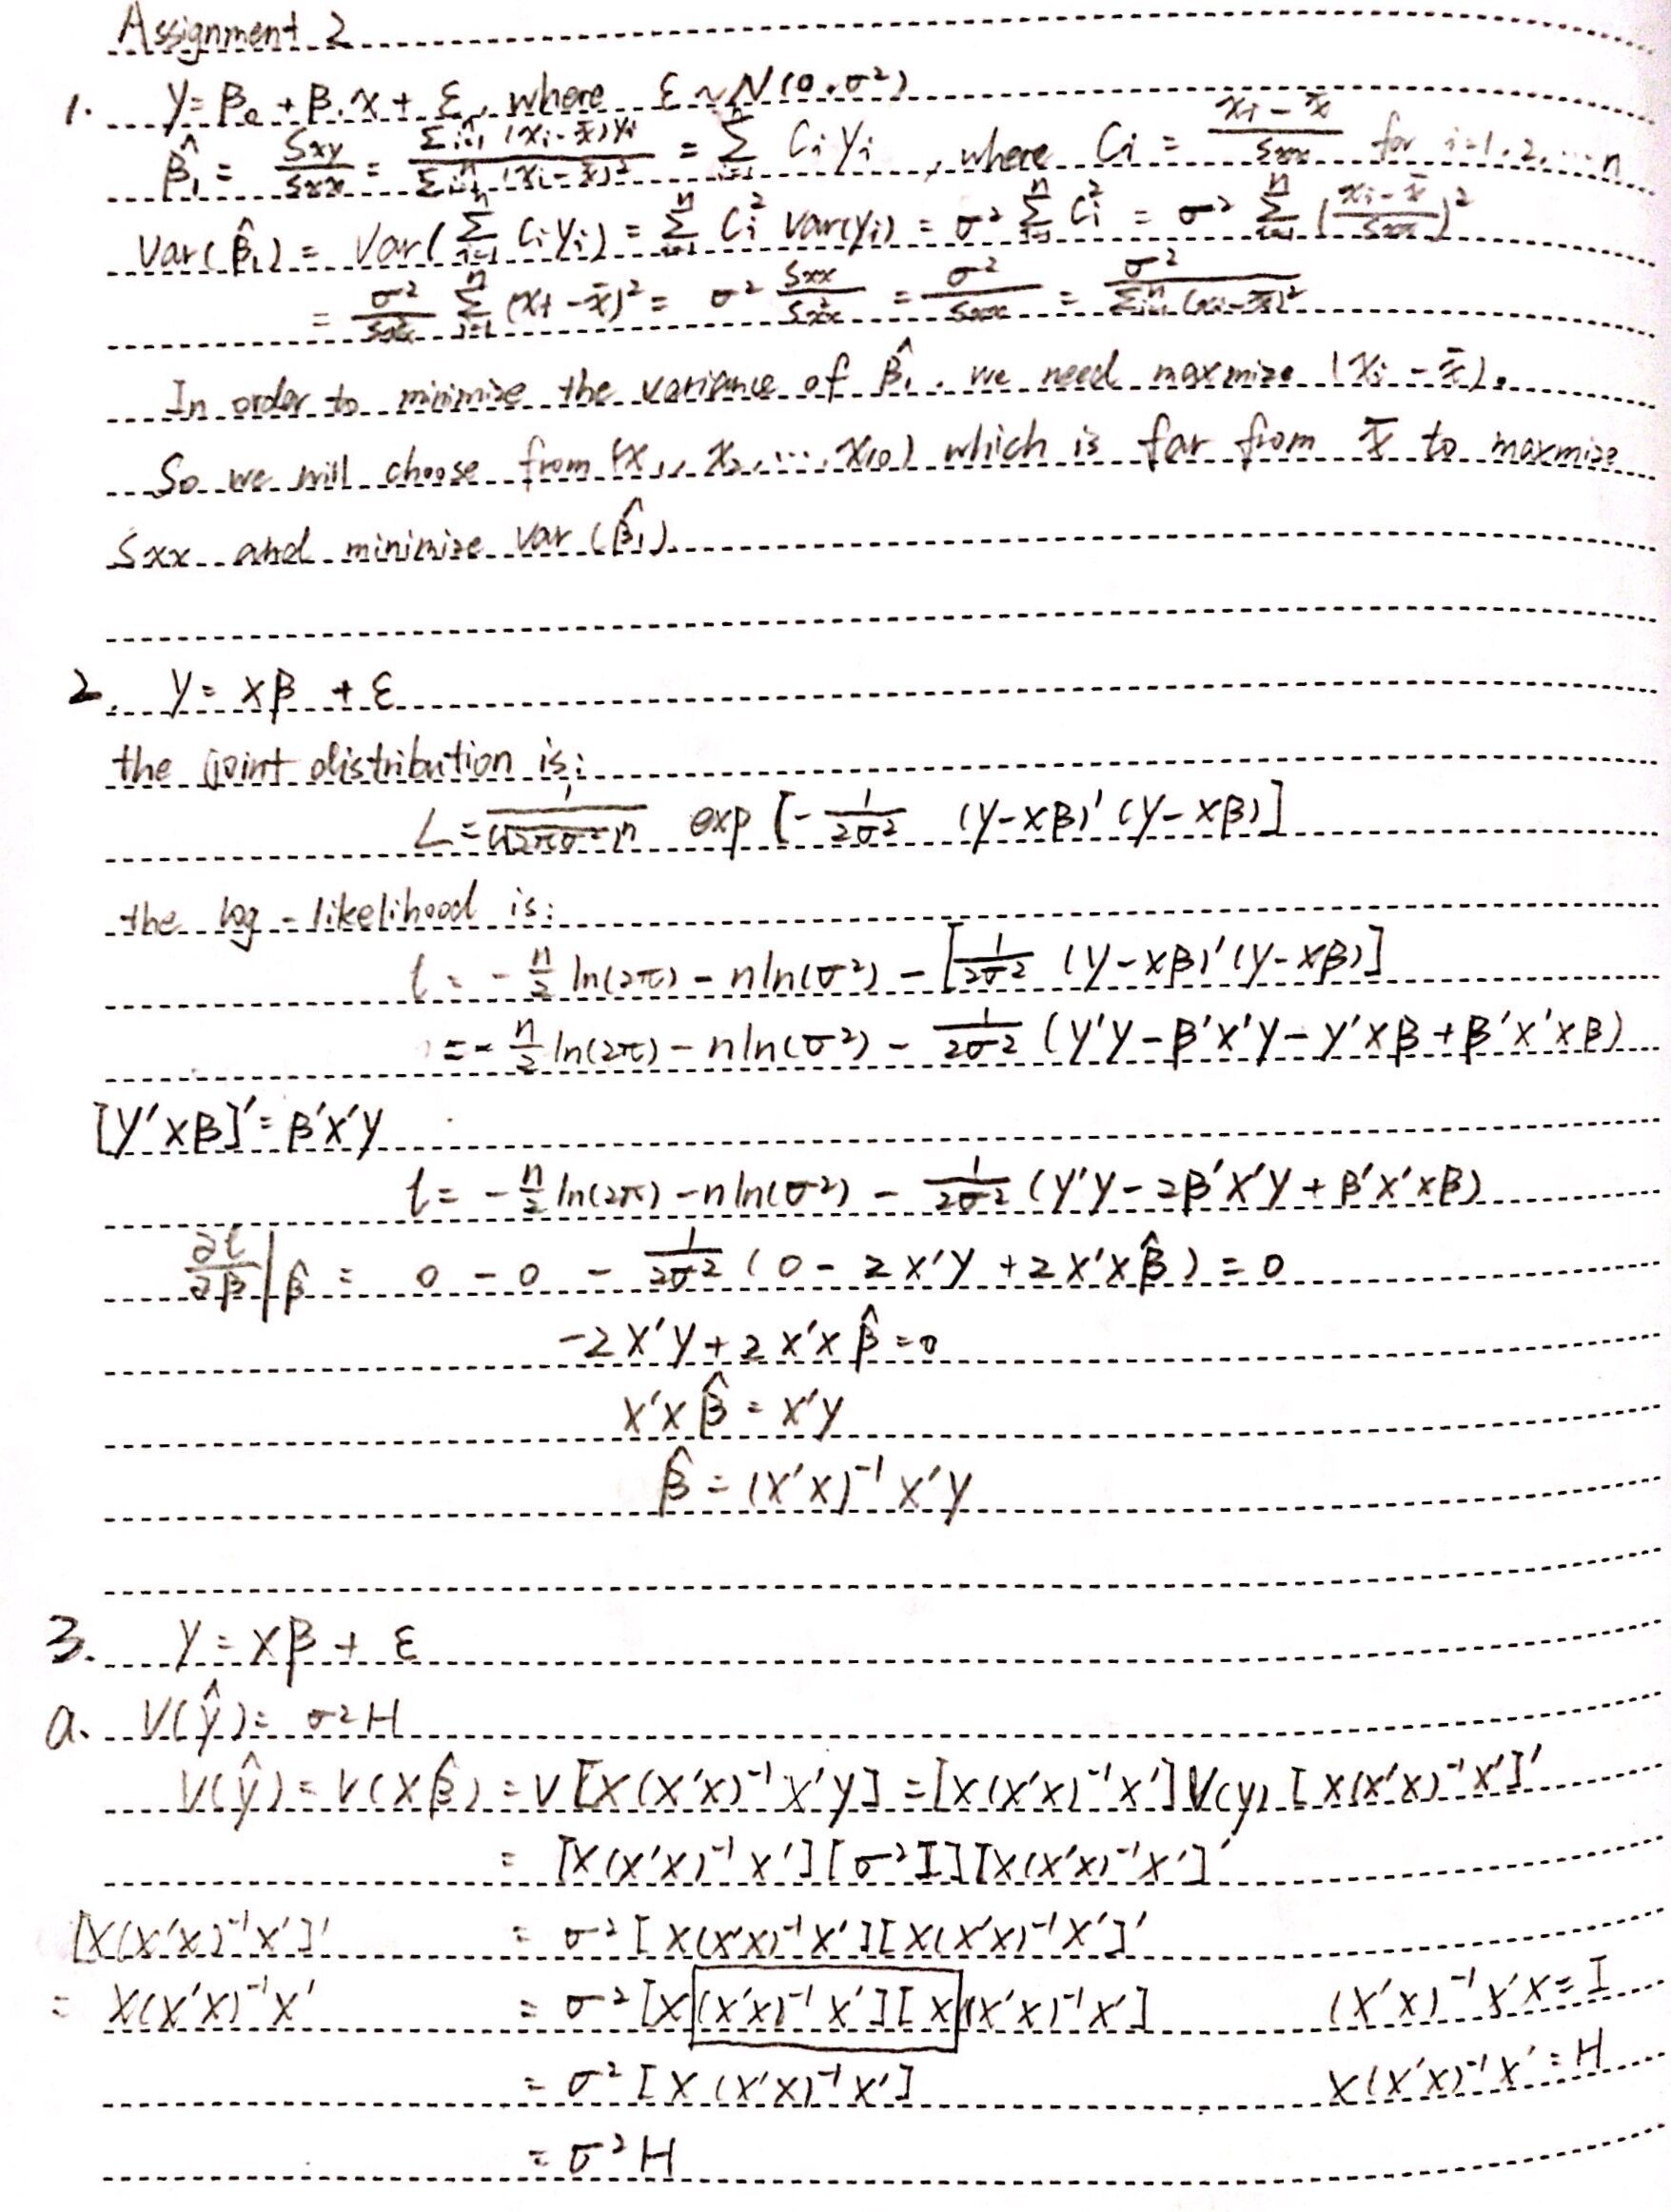 Assignment 2
1. y = β₀ + β₁x + ε, where ε ~ N(0, σ²)
β̂₁ = Sxy/Sxx = Σᵢ₌₁ⁿ (xᵢ - x̄)yᵢ / Σᵢ₌₁ⁿ (xᵢ - x̄)² = Σᵢ₌₁ⁿ Cᵢyᵢ, where Cᵢ = (xᵢ - x̄)/Sxx for i=1,2,...n
Var(β̂₁) = Var(Σᵢ₌₁ⁿ Cᵢyᵢ) = Σᵢ₌₁ⁿ Cᵢ² Var(yᵢ) = σ² Σᵢ₌₁ⁿ Cᵢ² = σ² Σᵢ₌₁ⁿ ((xᵢ - x̄)/Sxx)²
= σ²/Sxx² Σᵢ₌₁ⁿ (xᵢ - x̄)² = σ² Sxx/Sxx² = σ²/Sxx = σ²/Σᵢ₌₁ⁿ (xᵢ - x̄)²
In order to minimize the variance of β̂₁, we need maxmize (xᵢ - x̄).
So we will choose from (x₁, x₂, ..., x₁₀) which is far from x̄ to maxmize
Sxx and minimize var(β̂₁)
2. y = xβ + ε
the joint distribution is:
L = 1/(√2πσ²)ⁿ exp [-1/2σ² (y-xβ)'(y-xβ)]
the log-likelihood is:
l = -n/2 ln(2π) - n ln(σ²) - [1/2σ² (y-xβ)'(y-xβ)]
= -n/2 ln(2π) - n ln(σ²) - 1/2σ² (y'y - β'x'y - y'xβ + β'x'xβ)
[y'xβ]' = β'x'y
l = -n/2 ln(2π) - n ln(σ²) - 1/2σ² (y'y - 2β'x'y + β'x'xβ)
∂l/∂β | β̂ = 0 - 0 - 1/2σ² (0 - 2x'y + 2x'xβ̂) = 0
-2x'y + 2x'xβ̂ = 0
x'xβ̂ = x'y
β̂ = (x'x)⁻¹x'y
3. y = xβ + ε
a. V(ŷ) = σ²H
V(ŷ) = V(xβ̂) = V[x(x'x)⁻¹x'y] = [x(x'x)⁻¹x']V(y)[x(x'x)⁻¹x']'
= [x(x'x)⁻¹x'][σ²I][x(x'x)⁻¹x']'
[x(x'x)⁻¹x']' = σ²[x(x'x)⁻¹x'][x(x'x)⁻¹x']'
= x(x'x)⁻¹x' = σ²[x(x'x)⁻¹x'][x(x'x)⁻¹x'] (x'x)⁻¹x'x = I
= σ²[x(x'x)⁻¹x'] x(x'x)⁻¹x' = H
= σ²H